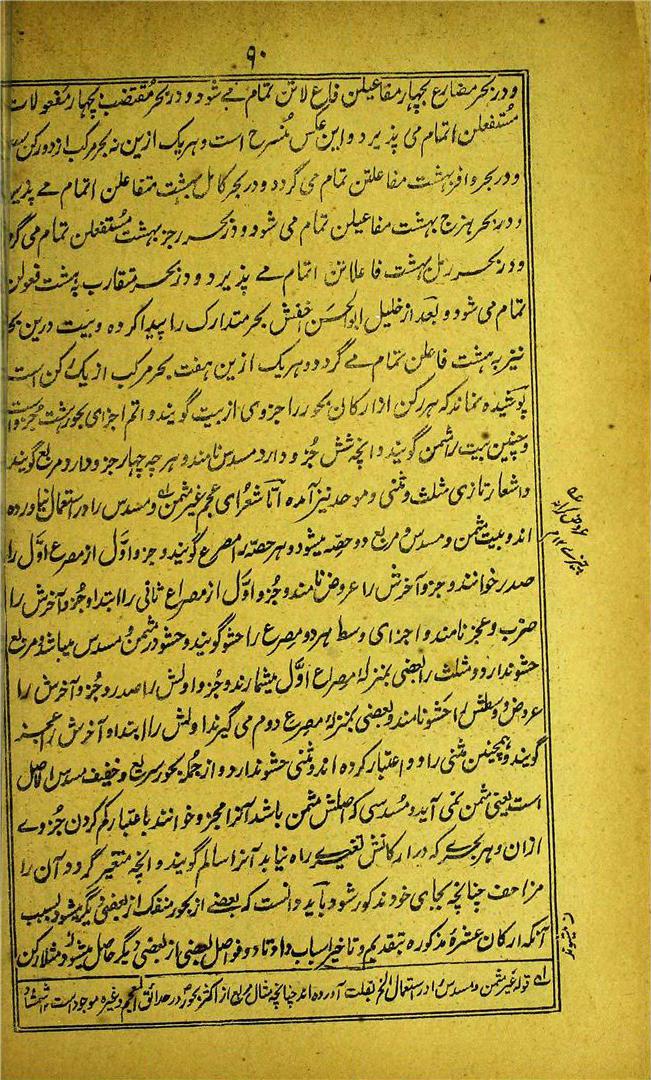 ۹۰
و در بحر مضارع بچهار مفاعیلن فاع لاتن تمام مے شود و در بحر مقتضب بچهار مفعولات
مستفعلن اتمام می پذیرد و این عکس منسرح است و هر یک ازین نه بحر مرکب از دو رکن ست
و در بحر وافر بهشت مفاعلتن تمام می گردد و در بحر کامل بهشت متفاعلن اتمام مے پذیرد
و در بحر هزج بهشت مفاعیلن تمام می شود و در بحر رجز بهشت مستفعلن تمام می گردد
و در بحر رمل بهشت فاعلاتن اتمام مے پذیرد و در بحر متقارب بهشت فعولن
تمام می شود و بعد از خلیل ابوالحسن اخفش بحر متدارک را پیدا کرده و بیت درین بحر
نیز به هشت فاعلن تمام مے گردد و هر یک ازین هفت بحر مرکب از یک رکن است
پوشیده نماند که هر رکن از ارکان بحور را جزوی از بیت گویند و اتم اجزای بحور هشت جزو است
و چنین بیت را مثمن گویند و انچه شش جزو دارد مسدس نامند و هر چه چهار جزو دارد مربع گویند
و اشعار تازی مثلث و مثنی و موحد نیز آمده اما شعرای عجم غیر مثمن و مسدس را در استعمال نیاورده
اند و بیت مثمن و مسدس و مربع دو حصه میشود و هر حصه را مصرع گویند و جزو اول از مصرع اول را
صدر خوانند و جزو آخرش را عروض نامند و جزو اول از مصراع ثانی را ابتدا و جزو آخرش را
ضرب و عجز نامند و اجزای وسط هر دو مصرع را حشو گویند و حشو در مثمن و مسدس میباشد و مربع
حشو ندارد و مثلث را بعضی بمنزلۀ مصراع اول میشمارند و جزو اولش را صدر و جزو آخرش را
عروض و وسطش را حشو نامند و بعضی بمنزلۀ مصرع دوم می گیرند اولش را ابتدا و آخرش را عجز
گویند و همچنین مثنی را و و اعتبار کرده اند و مثنی حشو ندارد و از جمله بحور سریع و خفیف مسدس الاصل
است یعنی مثمن نمی آید و مسدسی که اصلش مثمن باشد آنرا مجزو خوانند باعتبار کم کردن جزوے
ازان و هر بحرے که در ارکانش تغیرے راه نیابد آنرا سالم گویند و انچه متغیر گردد آن را
مزاحف چنانچه بجای خود مذکور شود باید دانست که بعضے از بحور منفک از بعضی دیگر میشود بسبب
آنکه ارکان عشرۀ مذکوره بتقدیم و تاخیر اسباب و اوتاد و فواصل بعضی از بعضی دیگر حاصل میشود مثلا رکن
قوله غیر مثمن و مسدس را در استعمال الخ بقلت آورده اند چنانچه مثال مربع از اکثر بحور در حدائق العجم وغیره موجود است ۱۲